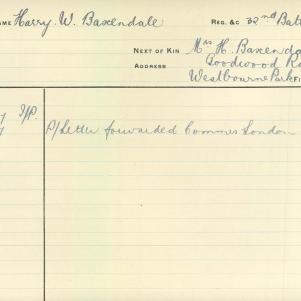 NAME Harry W. Baxendale REG. &C 32nd Batt
NEXT OF KIN Mrs H. Baxenda
ADDRESS Goodwood Ro
Westbourne Park
7 I/P. P/Letter forwarded Commes London
7